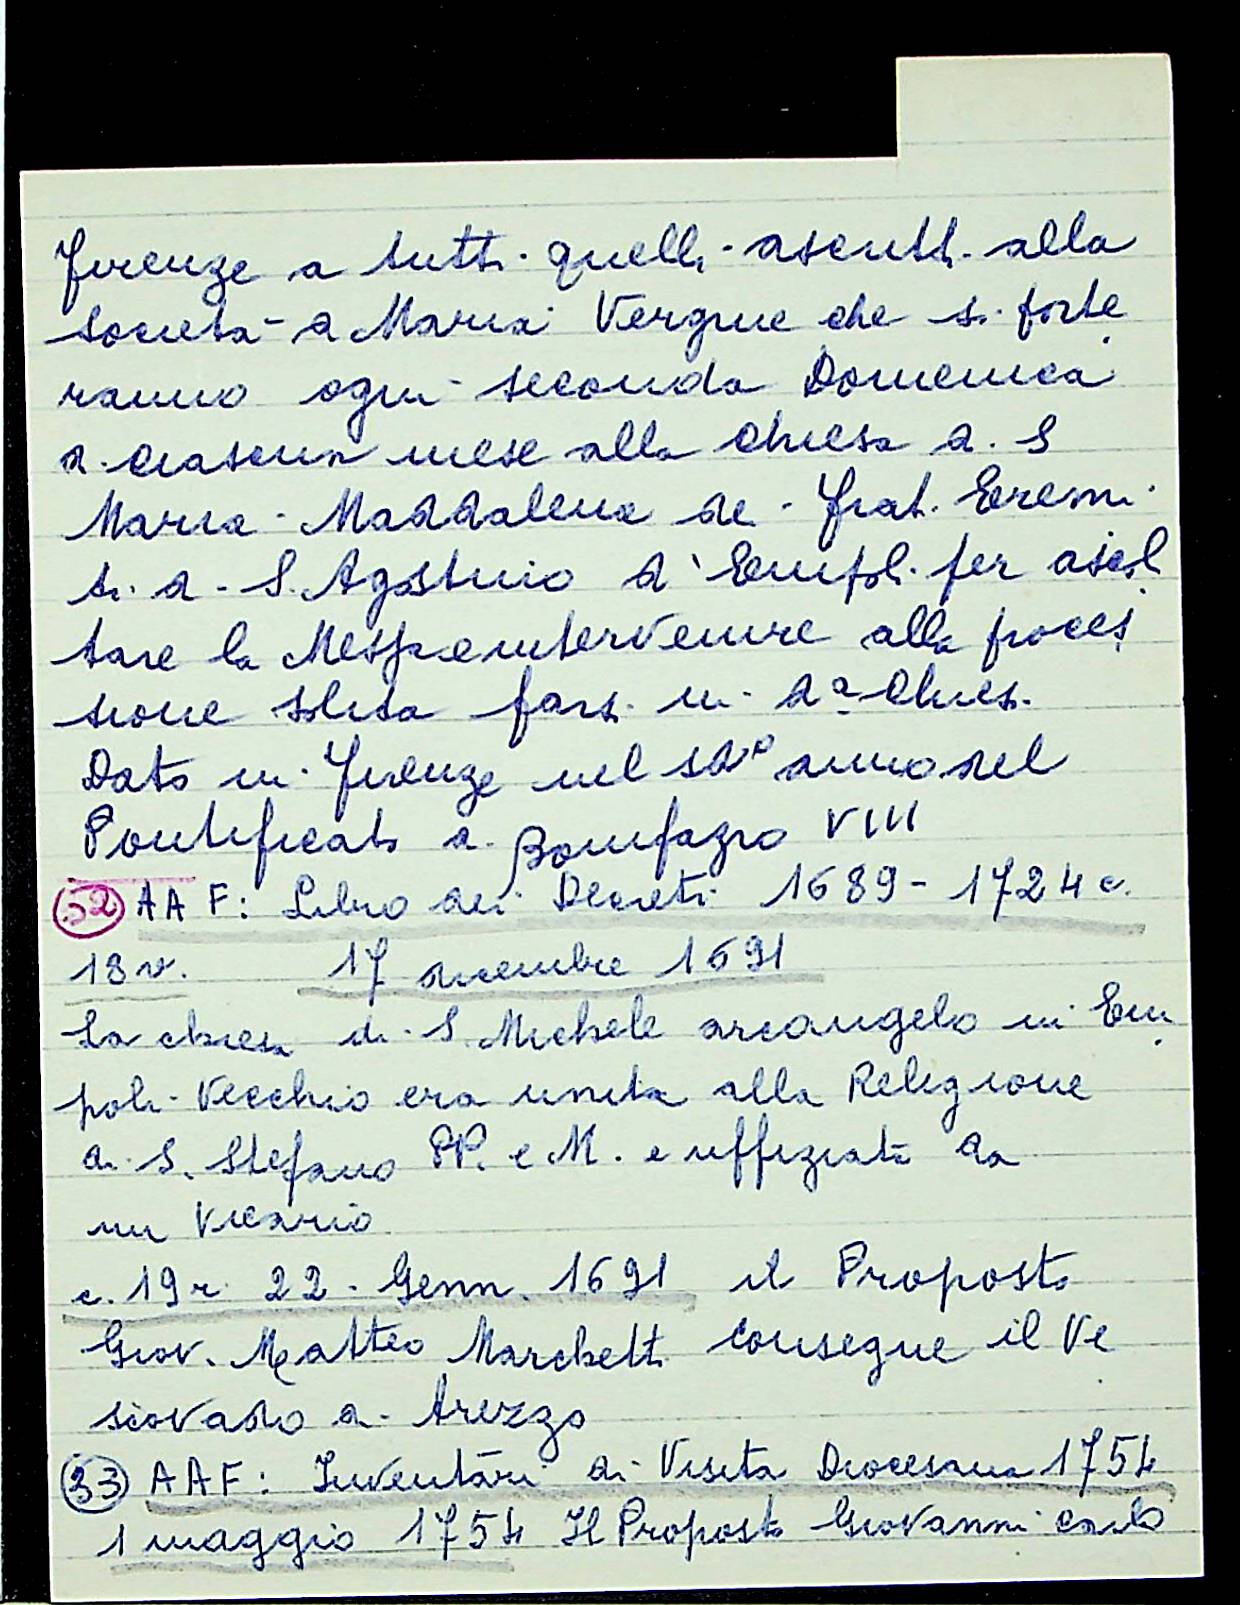 Firenze a tutti quelli ascritti alla
società di Maria Vergine che si porte
ranno ogni seconda Domenica
di ciascun mese alla chiesa di S
Maria Maddalena dei frati Eremi
ti di S. Agostino d'Empoli per ascol
tare la Messa e intervenire alla proces
sione solita farsi in da Chies.
Dato in Firenze nel anno del
Pontificato di Bonifazio VIII
52 AAF: Libro dei Decreti 1689-1724 c.
18v. 17 dicembre 1691
La chiesa di S. Michele arcangelo in Em
poli Vecchio era unita alla Religione
di S. Stefano PP. e M. e uffiziata da
un Vicario
c. 19r 22 Genn. 1691 il Proposto
Giov. Matteo Marchetti consegue il Ve
scovado di Arezzo
33 AAF: Inventari di Visita Diocesana 1754
1 maggio 1754 Il Proposto Giovanni Carlo